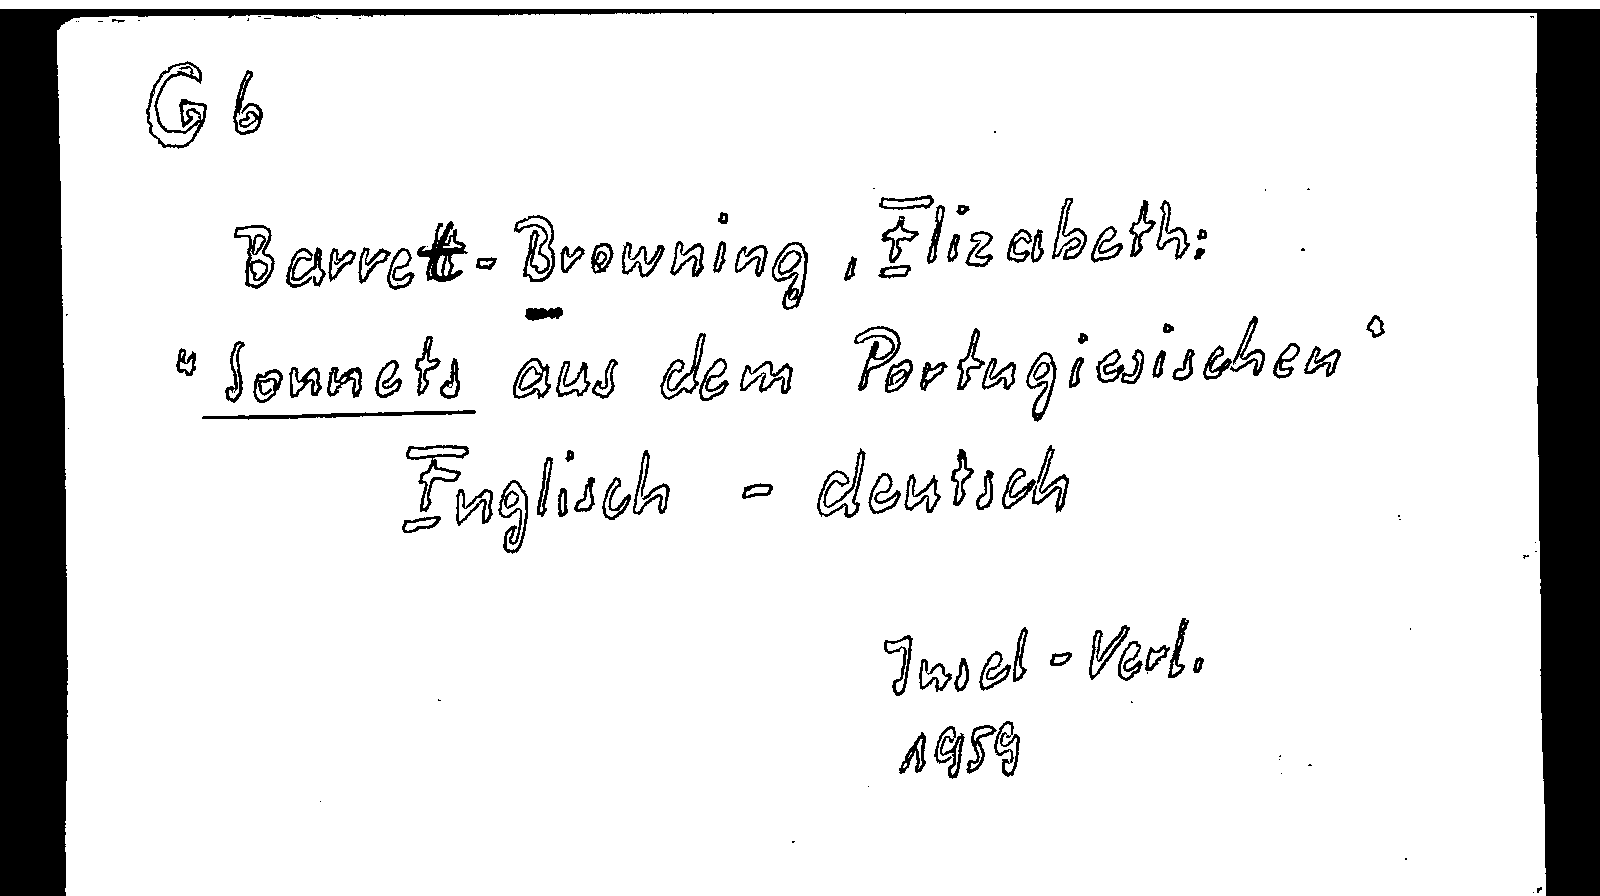 G 6
Barrett-Browning, Elizabeth:
"Sonnets aus dem Portugiesischen"
Englisch - deutsch
Insel-Verl.
1959